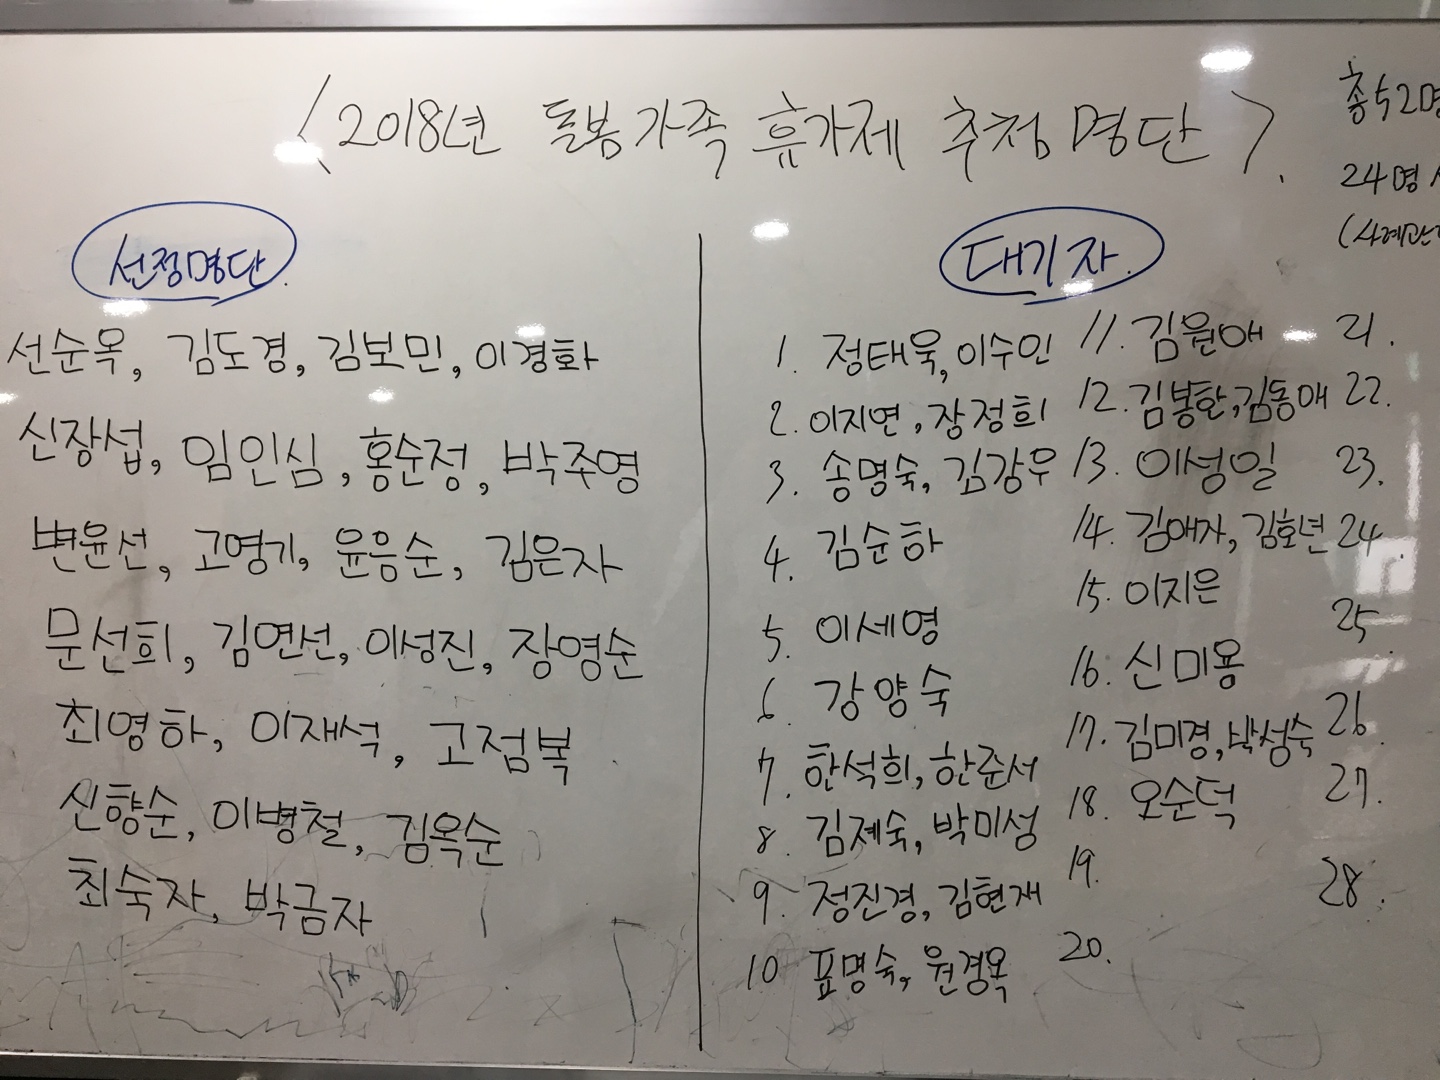 <2018년 돌봄가족 휴가제 추첨 명단>.
총 52명
24명
(사례관리
선정명단.
선순옥, 김도경, 김보민, 이경화
신장섭, 임인심, 홍순정, 박주영
변윤선, 고영기, 윤음순, 김은자
문선희, 김연선, 이성진, 장영순
최영하, 이재석, 고점복
신향순, 이병철, 김옥순
최숙자, 박금자
대기자.
1. 정태욱, 이수인
2. 이지연, 장정희
3. 송명숙, 김강우
4. 김순하
5. 이세영
6. 강양숙
7. 한석희, 한준서
8. 김제숙, 박미성
9. 정진경, 김현재
10 표명숙, 원경옥
11. 김원애
12. 김봉환, 김동애
13. 이성일
14. 김애자, 김호년
15. 이지은
16. 신미용
17. 김미경, 박성숙
18. 오순덕
19.
20.
21.
22.
23.
24.
25.
26.
27.
28.